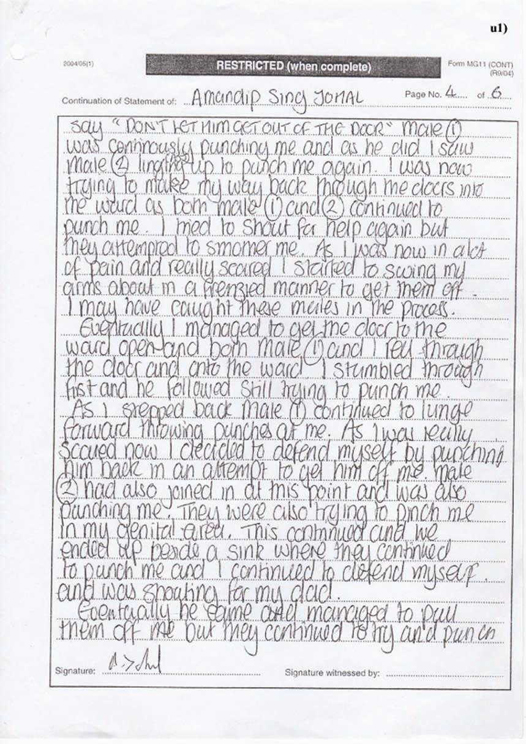 u1)
2004/05(1)
RESTRICTED (when complete)
Form MG11 (CONT)
(R9/04)
Continuation of Statement of: Amandip Sing JOHAL
Page No. 4 of 6
say "DON'T LET HIM GET OUT OF THE DOOR" Male (1)
was continously punching me and as he did I saw
Male (2) linging up to punch me again. I was now
trying to make my way back through the doors into
the ward as both male (1) and (2) continued to
punch me. I tried to shout for help again but
they attempted to smother me. As I was now in a lot
of pain and really scared I started to swing my
arms about in a frenzied manner to get them off.
I may have caught these males in the process.
Eventually I managed to get the door to the
ward open and both Male (1) and I fell through
the door and onto the ward. I stumbled through
fist and he followed still trying to punch me.
As I stepped back Male (1) continued to lunge
forward throwing punches at me. As I was really
scared now I decided to defend myself by punching
him back in an attempt to get him off me. Male
(2) had also joined in at this point and was also
punching me. They were also trying to pinch me
in my genital area. This continued and we
ended up beside a sink where they continued
to punch me and I continued to defend myself.
and was shouting for my dad.
Eventually he came and managed to pull
them off me but they continued to try and punch
Signature:
Signature witnessed by: